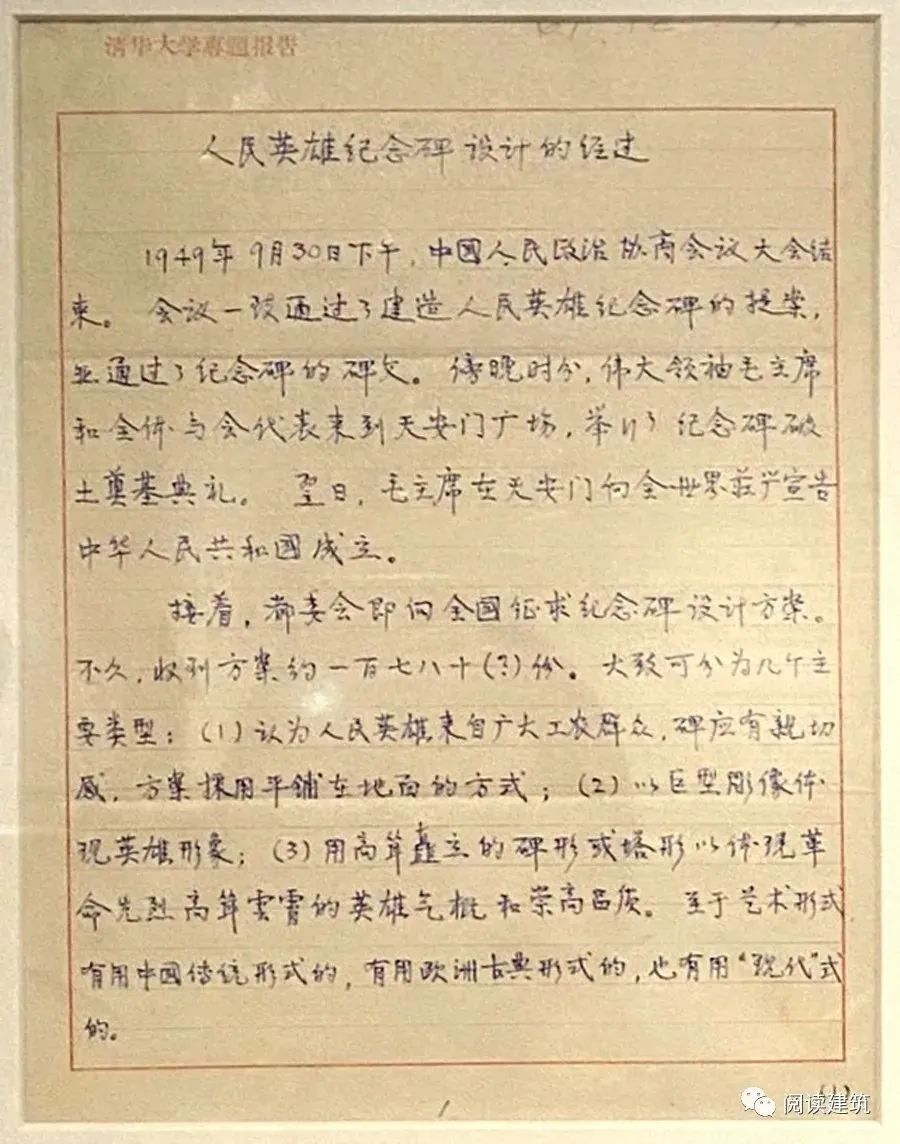 清华大学专题报告
人民英雄纪念碑设计的经过
1949年9月30日下午,中國人民政治协商会议大会结
束。会议一致通过了建造人民英雄纪念碑的提案,
并通过了纪念碑的碑文。傍晚时分,伟大领袖毛主席
和全体与会代表来到天安门广场,举行了纪念碑破
土奠基典礼。翌日,毛主席在天安门向全世界庄严宣告
中华人民共和國成立。
接着,都委会即向全國征求纪念碑设计方案。
不久,收到方案约一百七八十(?)份。大致可分为几个主
要类型:(1)认为人民英雄来自广大工农群众,碑应有親切
感,方案採用平铺在地面的方式;(2)以巨型彫像体
现英雄形象;(3)用高耸矗立的碑形或塔形以体现革
命先烈高耸雲霄的英雄气概和崇高品质。至于艺术形式
有用中國传统形式的,有用欧洲古典形式的,也有用“现代”式
的。
(1)
阅读建筑